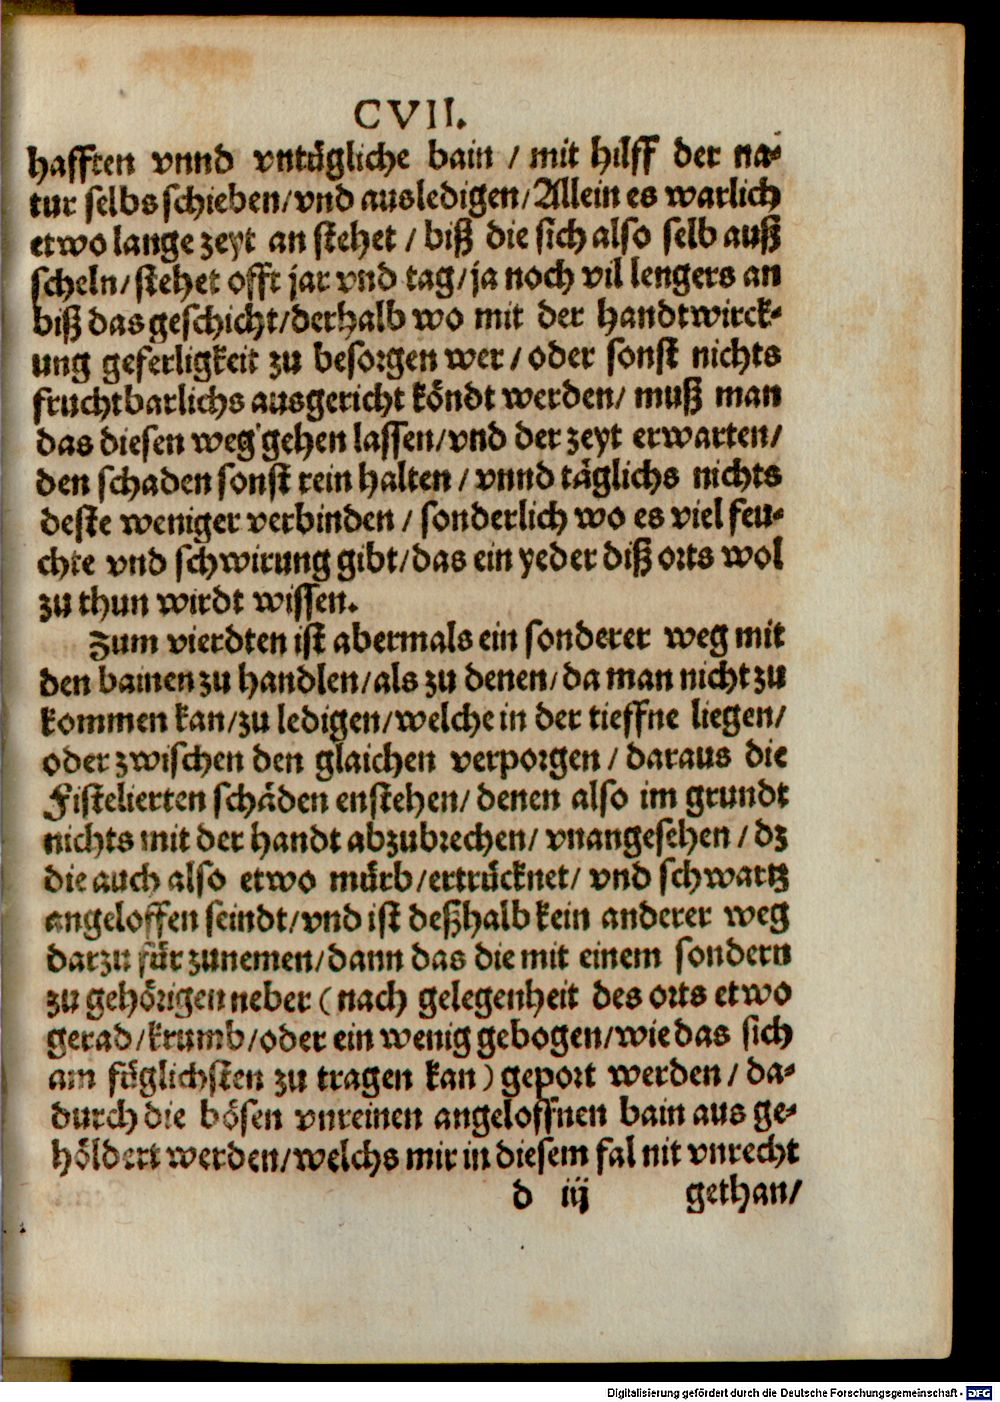 CVII.
hafften vnnd vnträgliche bain / mit hilff der na-
tur selbs schieben/vnd ausledigen/Allein es warlich
etwo lange zeyt an stehet / biß die sich also selb auß
scheln/stehet offt jar vnd tag/ja noch vil lengers an
biß das geschicht/derhalb wo mit der handtwirck-
ung geferligkeit zu besorgen wer/oder sonst nichts
fruchtbarlichs ausgericht köndt werden/ muß man
das diesen weg gehen lassen/vnd der zeyt erwarten/
den schaden sonst rein halten / vnnd täglichs nichts
deste weniger verbinden / sonderlich wo es viel feu-
chte vnd schwirung gibt/das ein yeder diß orts wol
zu thun wirdt wissen.
Zum vierdten ist abermals ein sonderer weg mit
den bainen zu handlen/als zu denen/da man nicht zu
kommen kan/zu ledigen/welche in der tieffne liegen/
oder zwischen den glaichen verporgen / daraus die
Fistelierten schäden enstehen/ denen also im grundt
nichts mit der handt abzubrechen/ vnangesehen / dz
die auch also etwo mürb/ertrücknet/ vnd schwartz
angeloffen seindt/vnd ist deßhalb kein anderer weg
darzu für zunemen/dann das die mit einem sondern
zu gehörigen neber (nach gelegenheit des orts etwo
gerad/krumb/oder ein wenig gebogen/wie das sich
am füglichsten zu tragen kan) geport werden/ da-
durch die bösen vnreinen angeloffnen bain aus ge-
höldert werden/welchs mir in diesem fal nit vnrecht
d iij gethan/
Digitalisierung gefördert durch die Deutsche Forschungsgemeinschaft - DFG